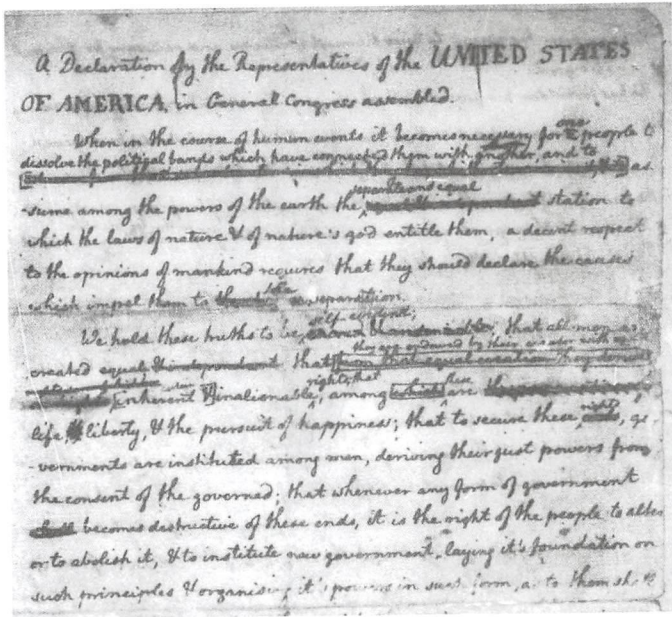 A Declaration by the Representatives of the UNITED STATES
OF AMERICA, in General Congress assembled.
When in the course of human events it becomes necessary for one people to
dissolve the political bands which have connected them with another, and to as
-sume among the powers of the earth the separate and equal station to
which the laws of nature & of nature's god entitle them, a decent respect
to the opinions of mankind requires that they should declare the causes
which impel them to the separation.
We hold these truths to be self-evident; that all men are
created equal & independent, that they are endowed by their creator with
from that equal creation they derive
rights, that these
inherent & inalienable, among which are
life, & liberty, & the pursuit of happiness; that to secure these rights, go
-vernments are instituted among men, deriving their just powers from
the consent of the governed; that whenever any form of government
shall becomes destructive of these ends, it is the right of the people to alter
or to abolish it, & to institute new government, laying it's foundation on
such principles & organising it's powers in such form, as to them